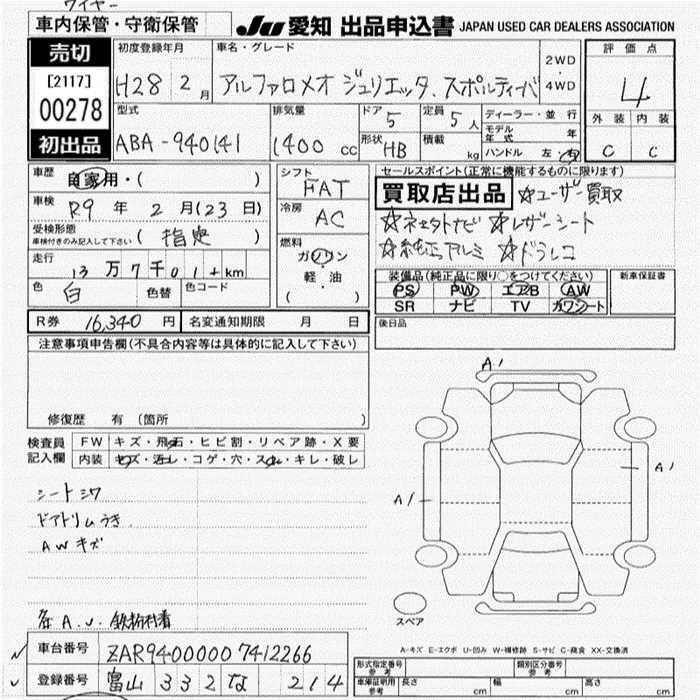 ワイヤー
車内保管・守衛保管
JU 愛知 出品申込書 JAPAN USED CAR DEALERS ASSOCIATION
売切
[2117]
00278
初出品
初度登録年月
H28 2月
車名・グレード
アルファロメオ ジュリエッタ.スポルティーバ
2WD
・
4WD
評価点
4
外装 内装
C C
型式
ABA-940141
排気量
1400 cc
ドア
5
定員
5人
形状
HB
積載
kg
ディーラー・並行
モデル年式 年
ハンドル 左・右
車歴
自家用・( )
車検
R9年2月(23日)
受検形態
車検付きのみ記入して下さい ( 指定 )
走行
13万7千01 + km
色
白
色替
色コード
シフト
FAT
冷房
AC
燃料
ガソリン
軽・油
( )
セールスポイント(正常に機能するものに限ります)
買取店出品 ☆ユーザー買取
☆レザーシート
☆純正アルミ ☆ドラレコ
装備品(純正品に限り○をつけてください)
PS PW エアB AW
SR ナビ TV カワシート
新車保証書
後日品
R券 16,340円 名変通知期限 月 日
注意事項申告欄(不具合内容等は具体的に記入して下さい)
修復歴 有 (箇所 )
検査員記入欄
FW キズ・飛石・ヒビ割・リペア跡・X要
内装 キズ・汚レ・コゲ・穴・スレ・キレ・破レ
シートシワ
ドアトリムうき
AWキズ
A1
A1
A1
スペア
A-キズ E-エクボ U-凹み W-補修跡 S-サビ C-腐食 XX-交換済
車台番号 ZAR94000007412266
登録番号 富山 332 な 214
形式指定番号 参考
類別区分番号 参考
車庫証明用 参考 長さ cm 幅 cm 高さ cm